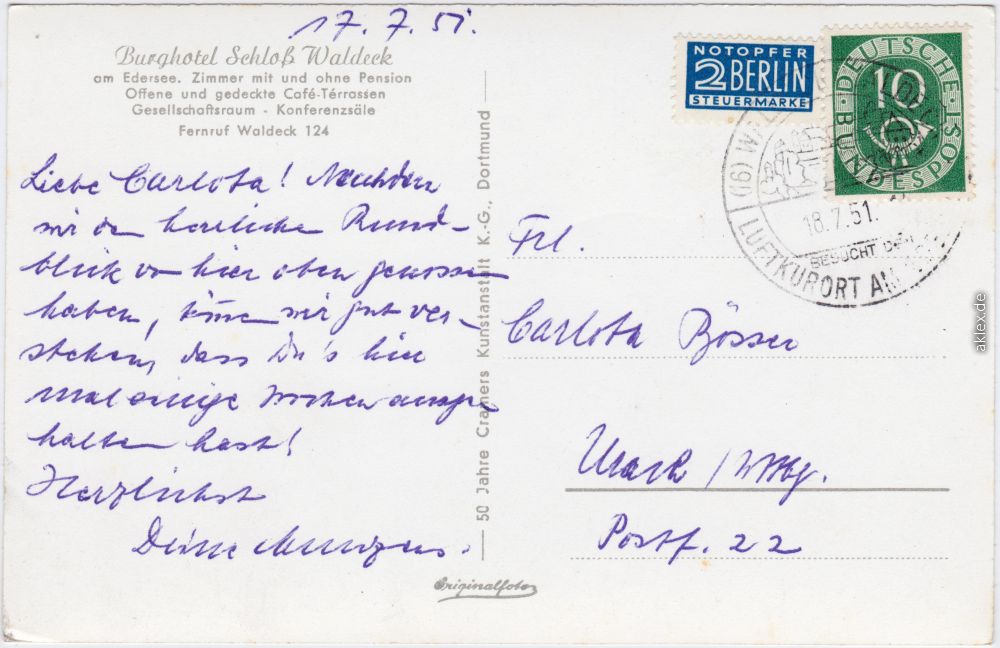 17.7.51.
Burghotel Schloß Waldeck
am Edersee. Zimmer mit und ohne Pension
Offene und gedeckte Café-Térrassen
Gesellschaftsraum - Konferenzsäle
Fernruf Waldeck 124
Liebe Carlota! Nachdem
wir den herrlichen Rund-
blick von hier oben genossen
haben, können wir gut ver-
stehen, dass Du's hier
mal einige Wochen ausge-
halten hast!
Herzlichst
Deine
50 Jahre Cramers Kunstanstalt K.-G., Dortmund
Originalfoto
NOTOPFER
2 BERLIN
STEUERMARKE
DEUTSCHE
BUNDESPOST
10
(16)
18.7.51.
BESUCHT
LUFTKURORT AM
Frl.
Carlota Bösser
Urach/Wttbg.
Postf. 22
aklex.de